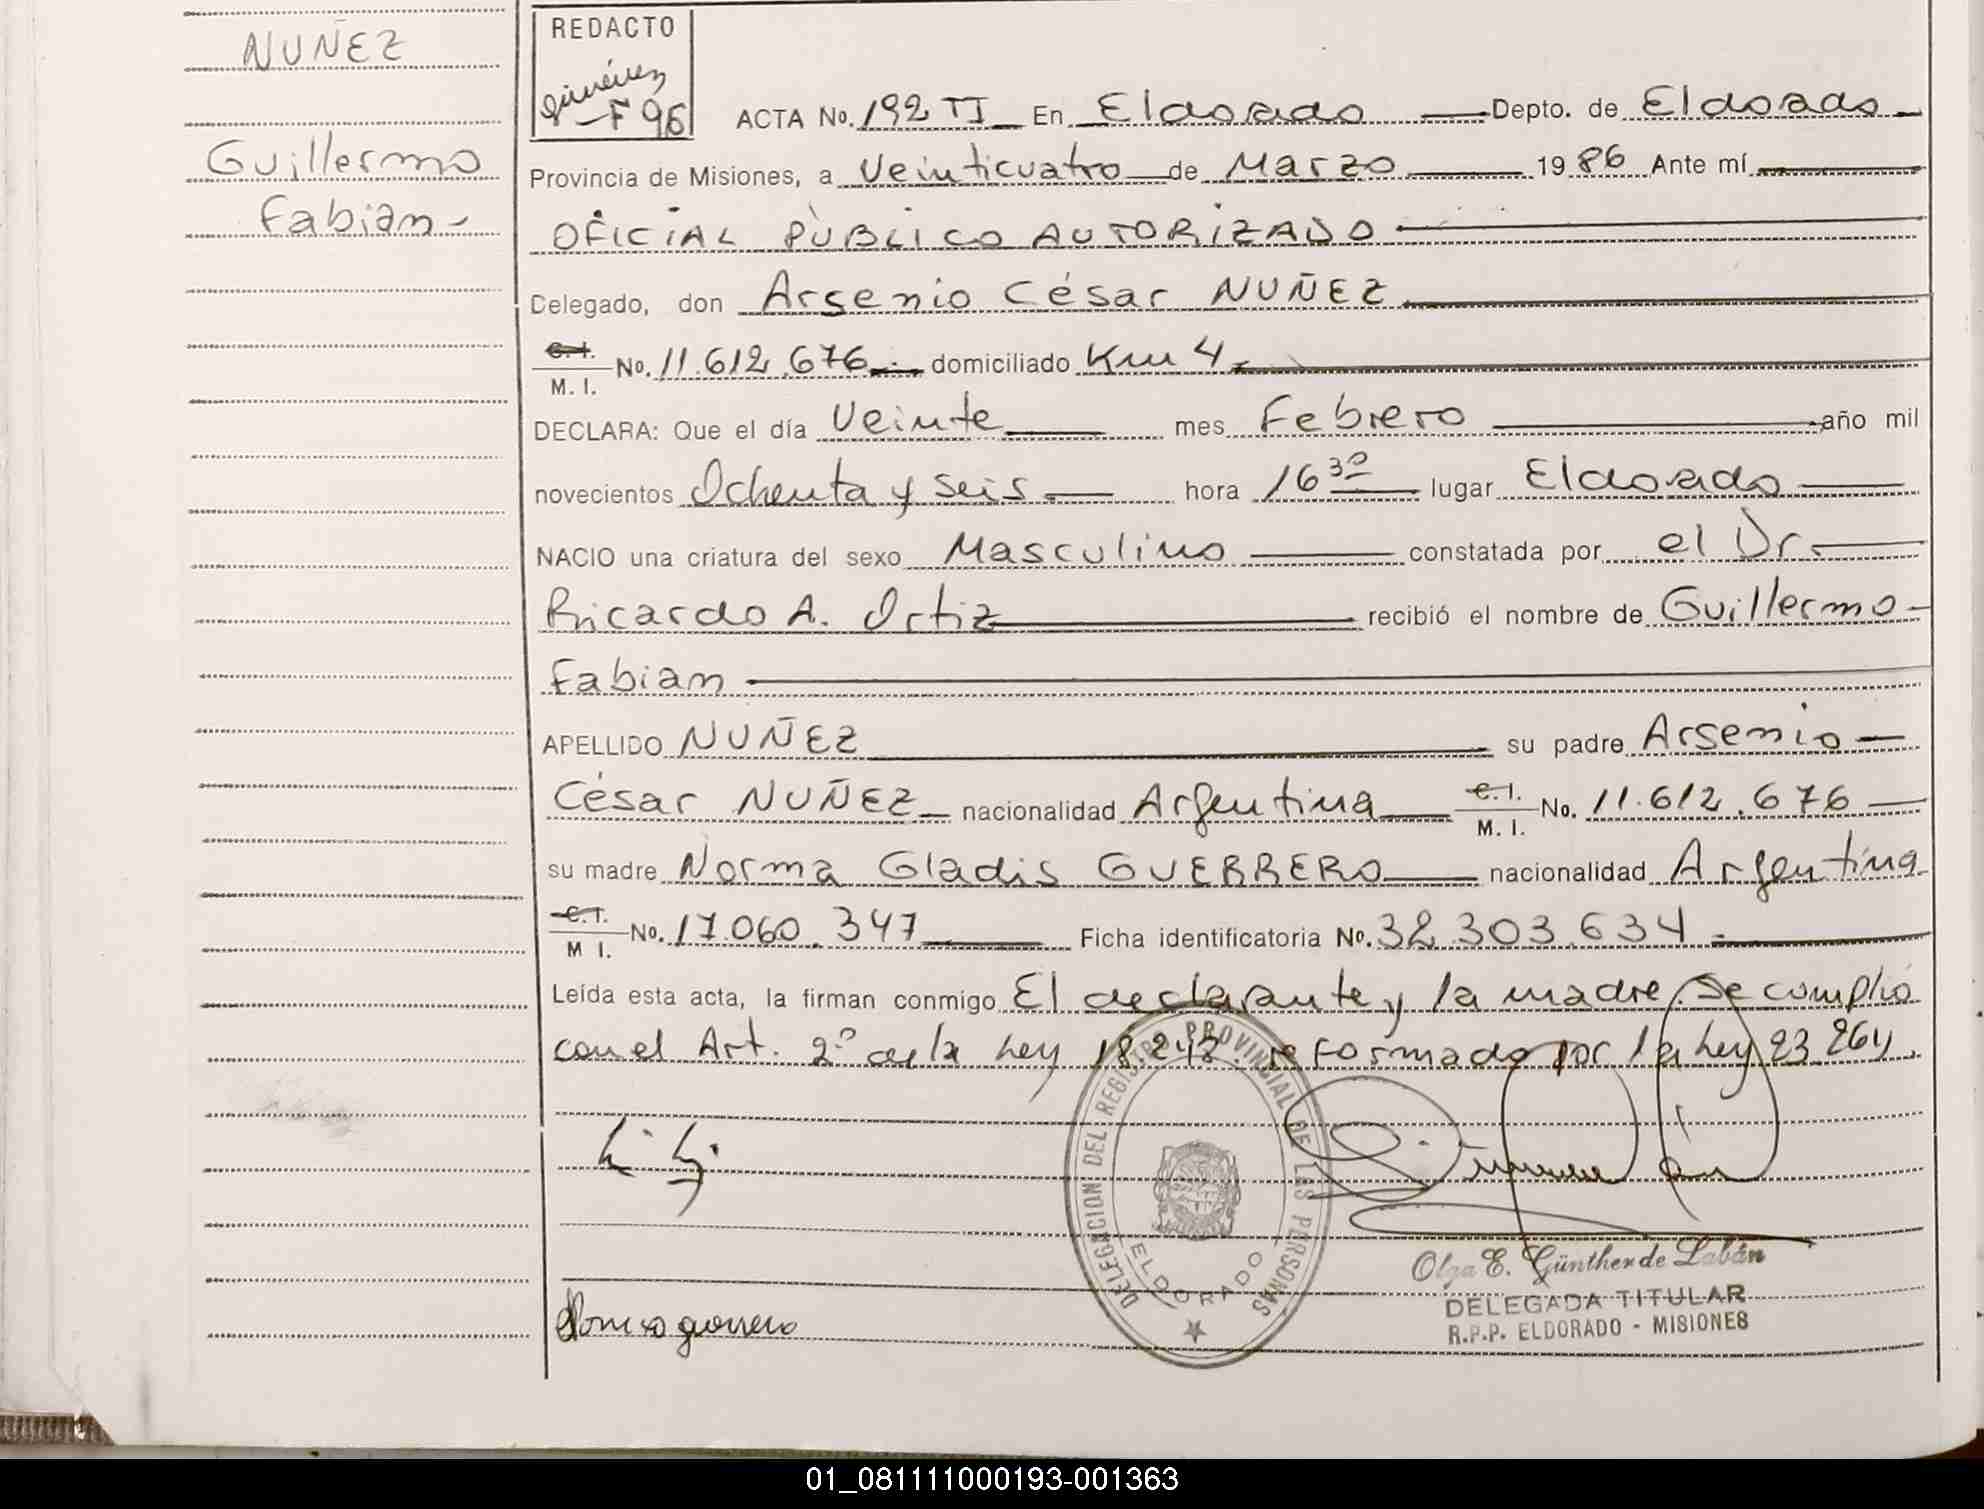 NUÑEZ
Guillermo
Fabian -
REDACTO
Giménez
F 96
ACTA No. 192 TI En Eldorado Depto. de Eldorado
Provincia de Misiones, a Veinticuatro de Marzo 1986 Ante mí
OFICIAL PÚBLICO AUTORIZADO
Delegado, don Arsenio César NUÑEZ
C. I. / M. I. No. 11.612.676.- domiciliado Km 4
DECLARA: Que el día Veinte mes Febrero año mil
novecientos Ochenta y seis hora 16 30 lugar Eldorado
NACIO una criatura del sexo Masculino constatada por el Dr.
Ricardo A. Ortiz recibió el nombre de Guillermo
Fabian
APELLIDO NUÑEZ su padre Arsenio
César NUÑEZ nacionalidad Argentina C. I. / M. I. No. 11.612.676
su madre Norma Gladis GUERRERO nacionalidad Argentina
C. I. / M I. No. 17.060.347 Ficha identificatoria No. 32.303.634.-
Leída esta acta, la firman conmigo El declarante y la madre. Se cumplió
con el Art. 2º de la Ley 18.248 reformado por la Ley 23.264.
DELEGACION DEL REGISTRO PROVINCIAL DE LAS PERSONAS
ELDORADO
Olga E. Günther de Labán
DELEGADA TITULAR
R.P.P. ELDORADO - MISIONES
01_081111000193-001363